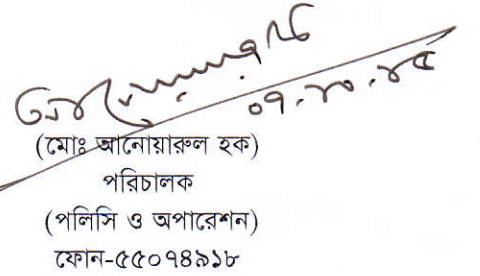 (মোঃ আনোয়ারুল হক)
পরিচালক
(পলিসি ও অপারেশন)
ফোন-৫৫০৭৪৯১৮